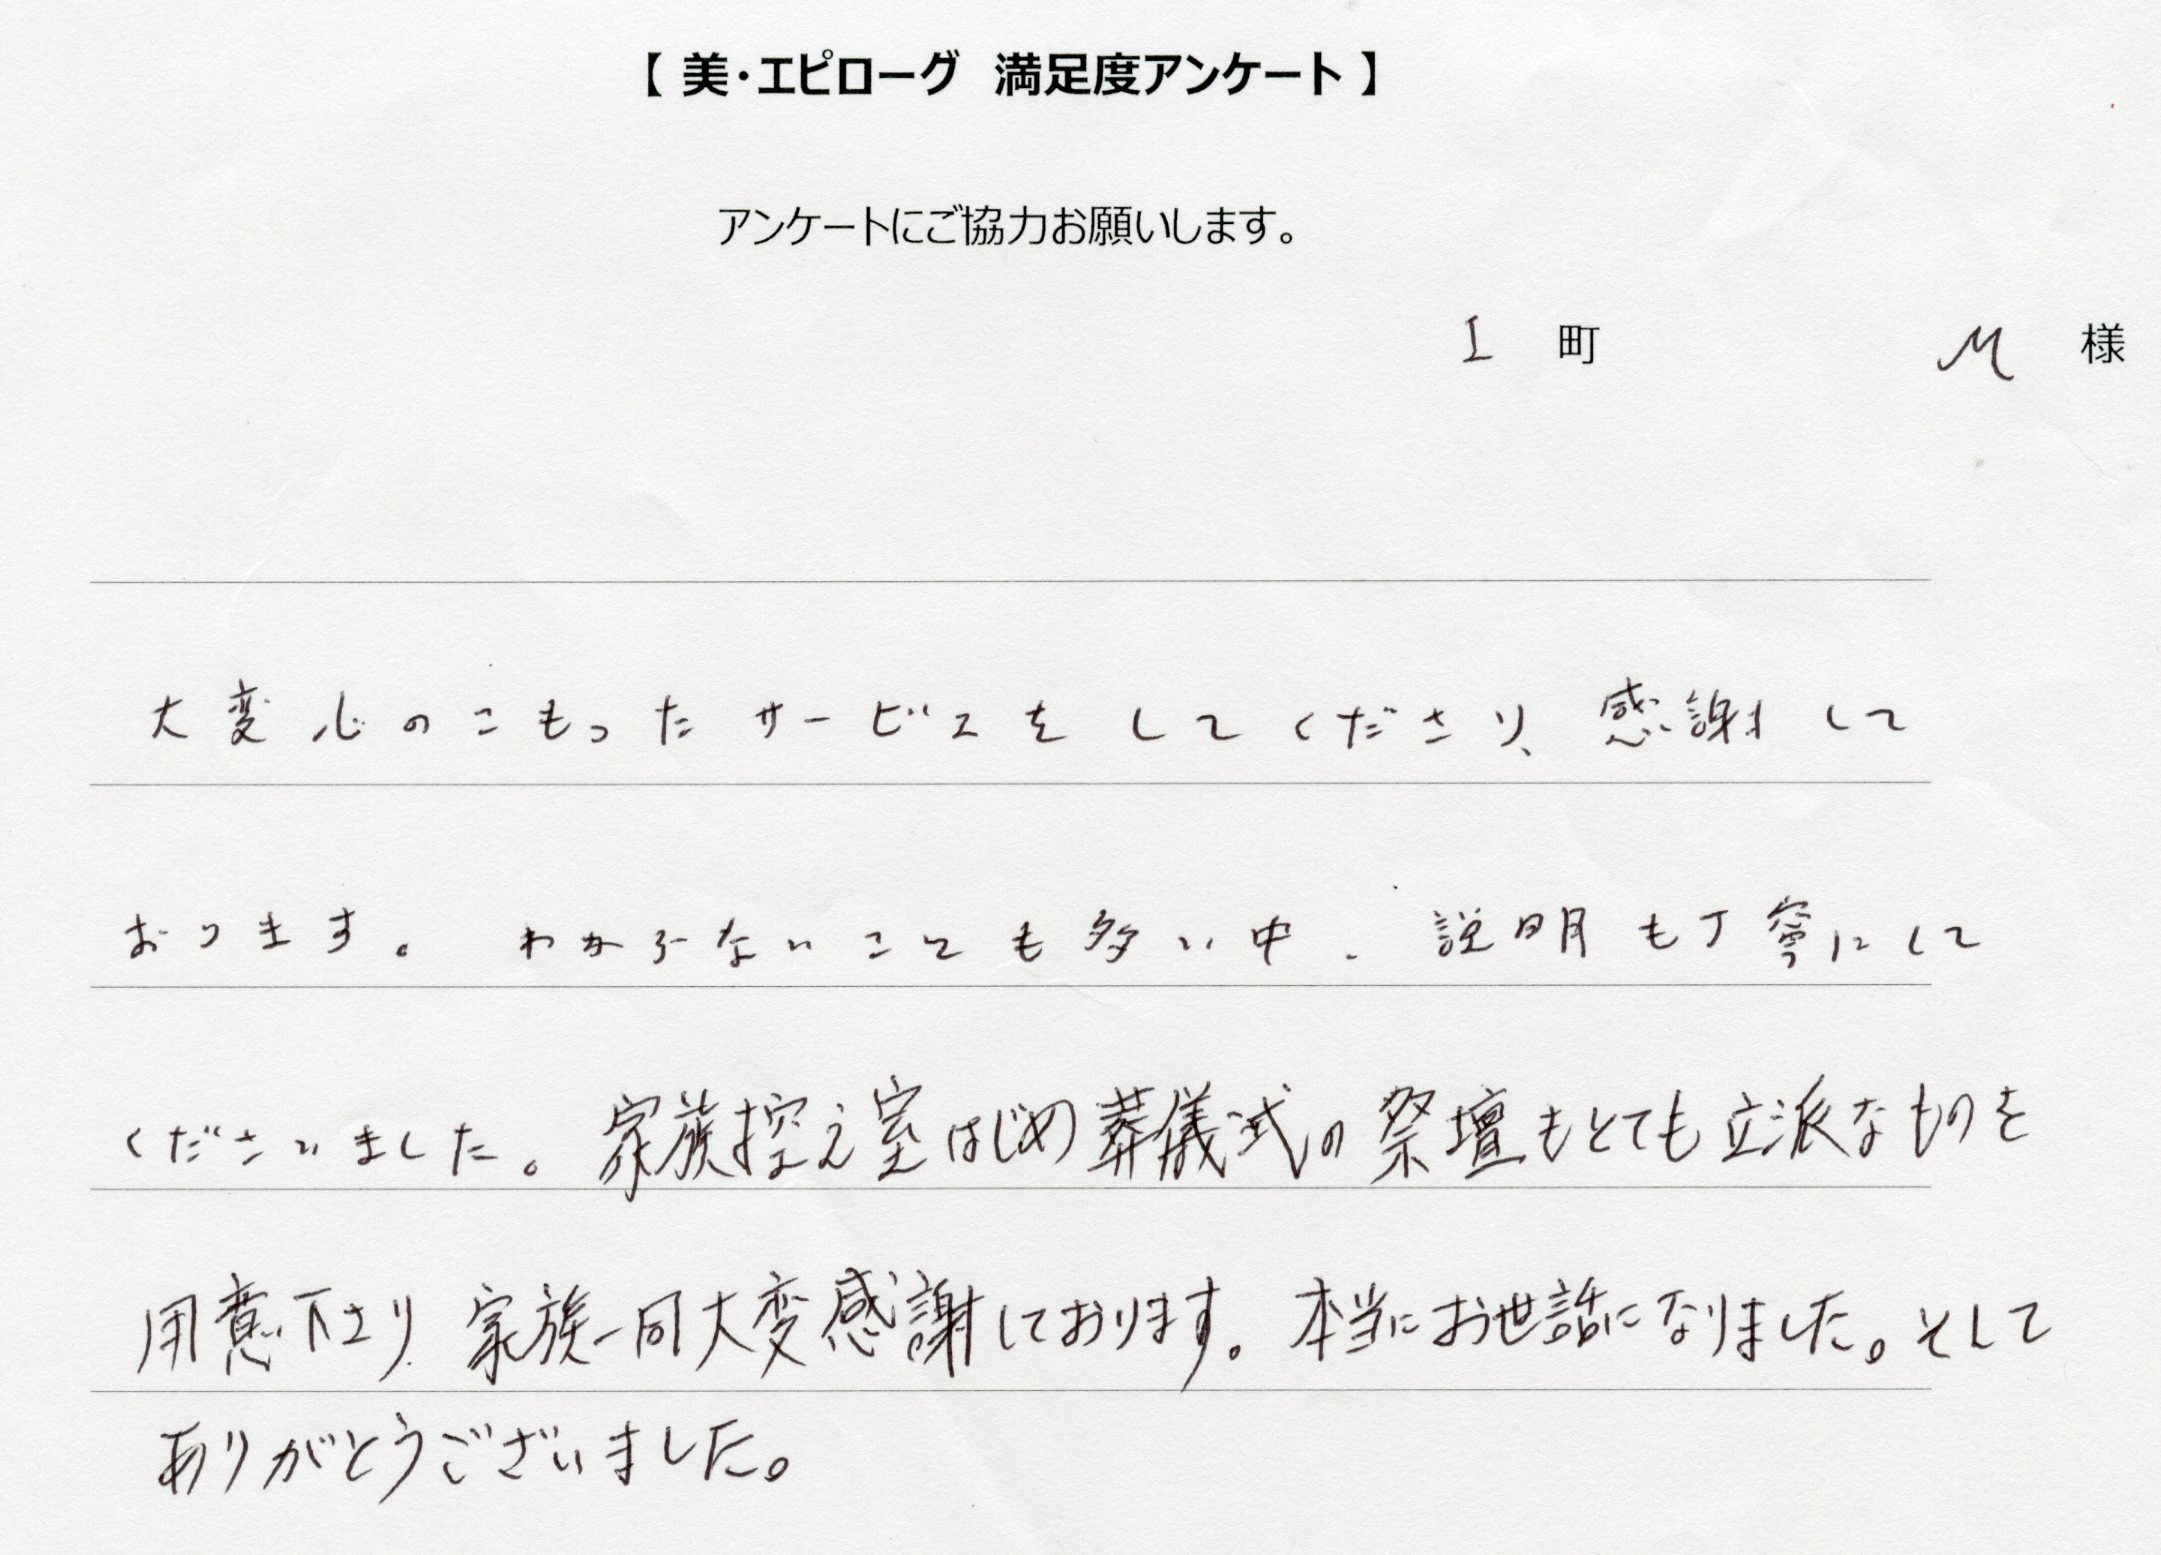 【 美・エピローグ　満足度アンケート 】
アンケートにご協力お願いします。
I 町　M 様
大変心のこもったサービスをしてくださり、感謝して
おります。わからないことも多い中、説明も丁寧にして
くださいました。家族控え室はじめ葬儀式の祭壇もとても立派なものを
用意下さり、家族一同大変感謝しております。本当にお世話になりました。そして
ありがとうございました。